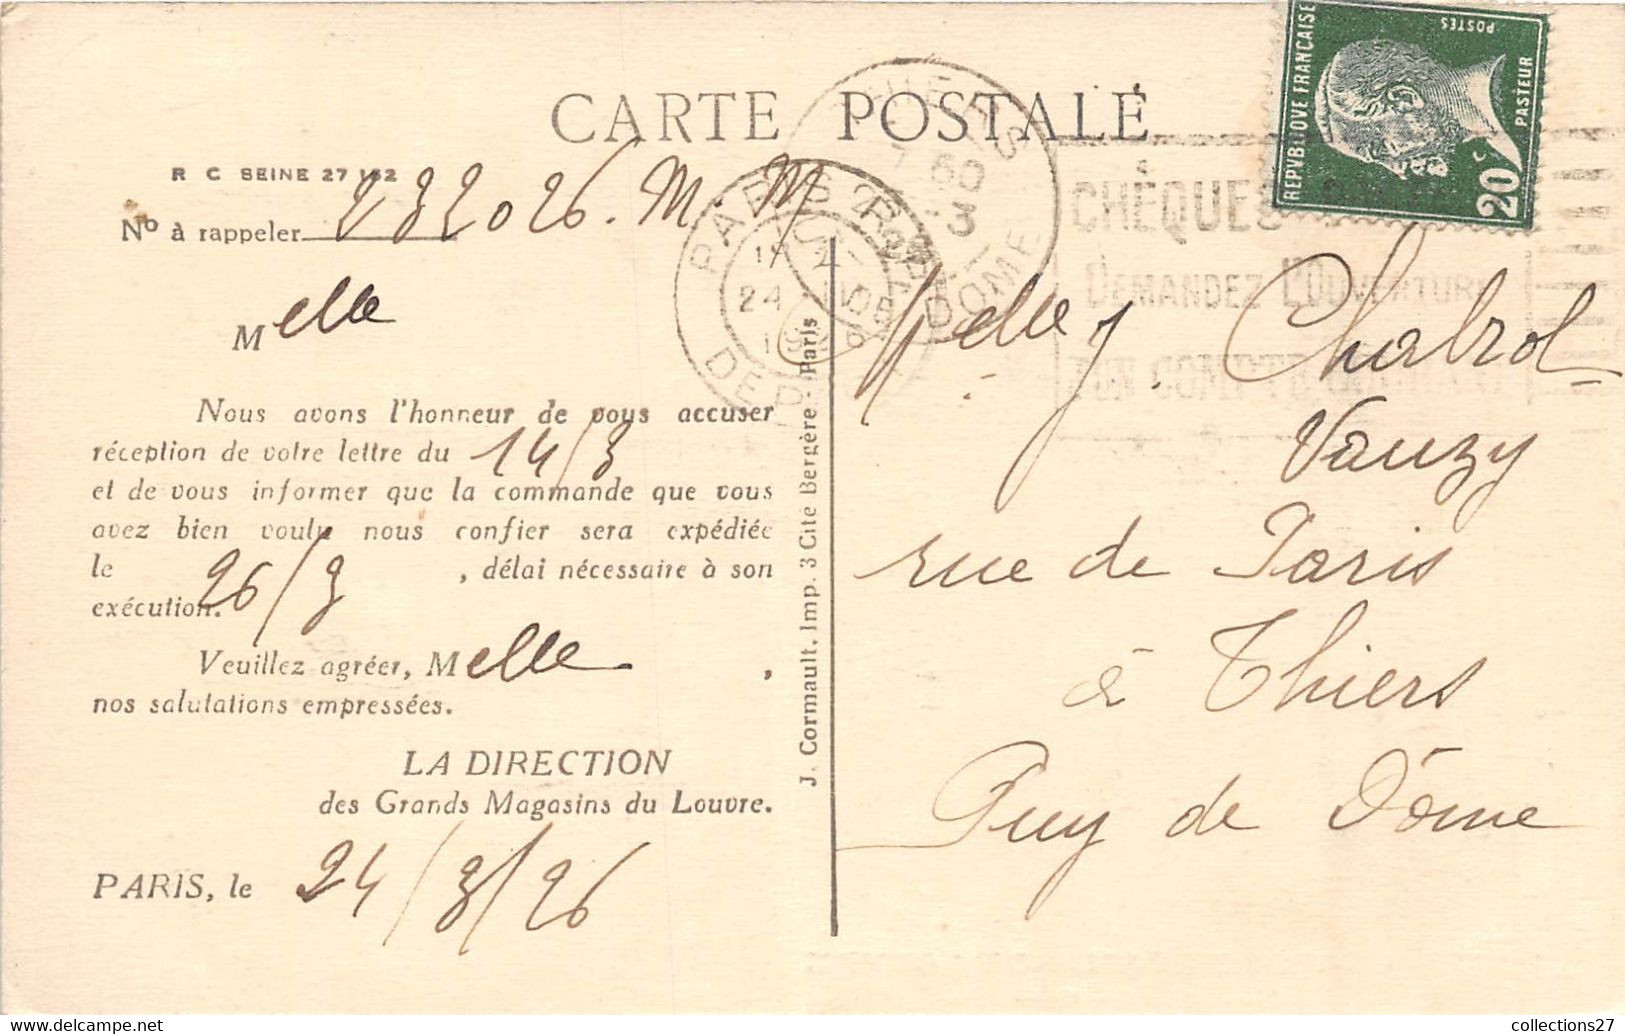 CARTE POSTALE
R C SEINE 27 162
Nº à rappeler 232026. M. M
Melle
Nous avons l'honneur de vous accuser
réception de votre lettre du 14/3
et de vous informer que la commande que vous
avez bien voulu nous confier sera expédiée
le 26/3, délai nécessaire à son
exécution.
Veuillez agréer, Melle,
nos salutations empressées.
LA DIRECTION
des Grands Magasins du Louvre.
PARIS, le 24/3/26
J. Cormault, Imp. 3 Cité Bergère - Paris
REPVBLIQVE FRANÇAISE
POSTES
PASTEUR
20
THIERS
DOME
PARIS
DEPART
24
CHÈQUES
DEMANDEZ L'OUVERTURE
Melle J. Chabrol
Vauzy
rue de Paris
à Thiers
Puy de Dôme
collections27
www.delcampe.net